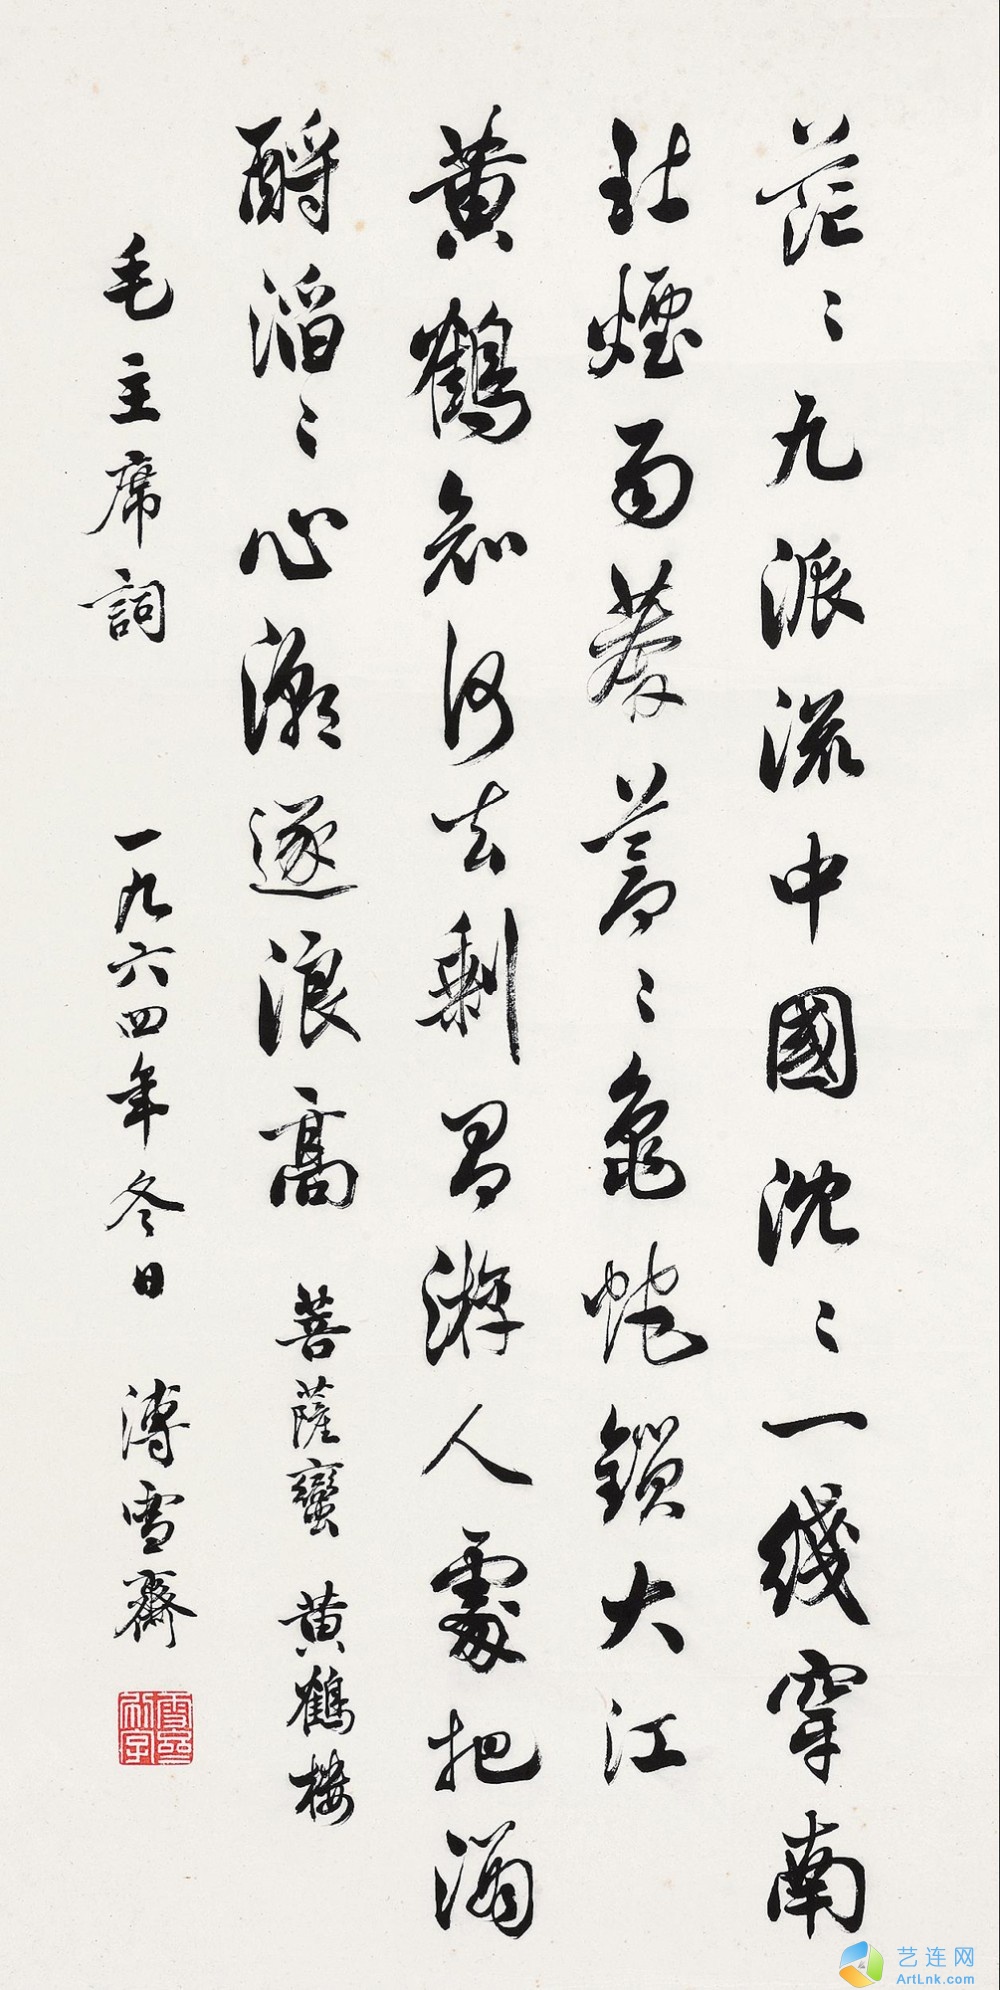 茫〻九派流中國沈〻一綫穿南
北煙雨莽蒼〻龜蛇鎖大江
黄鶴知何去剩留游人處把酒
酹滔〻心潮逐浪高 菩薩蠻 黄鶴樓
毛主席詞 一九六四年冬日 溥雪齋
艺连网
ArtLnk.com